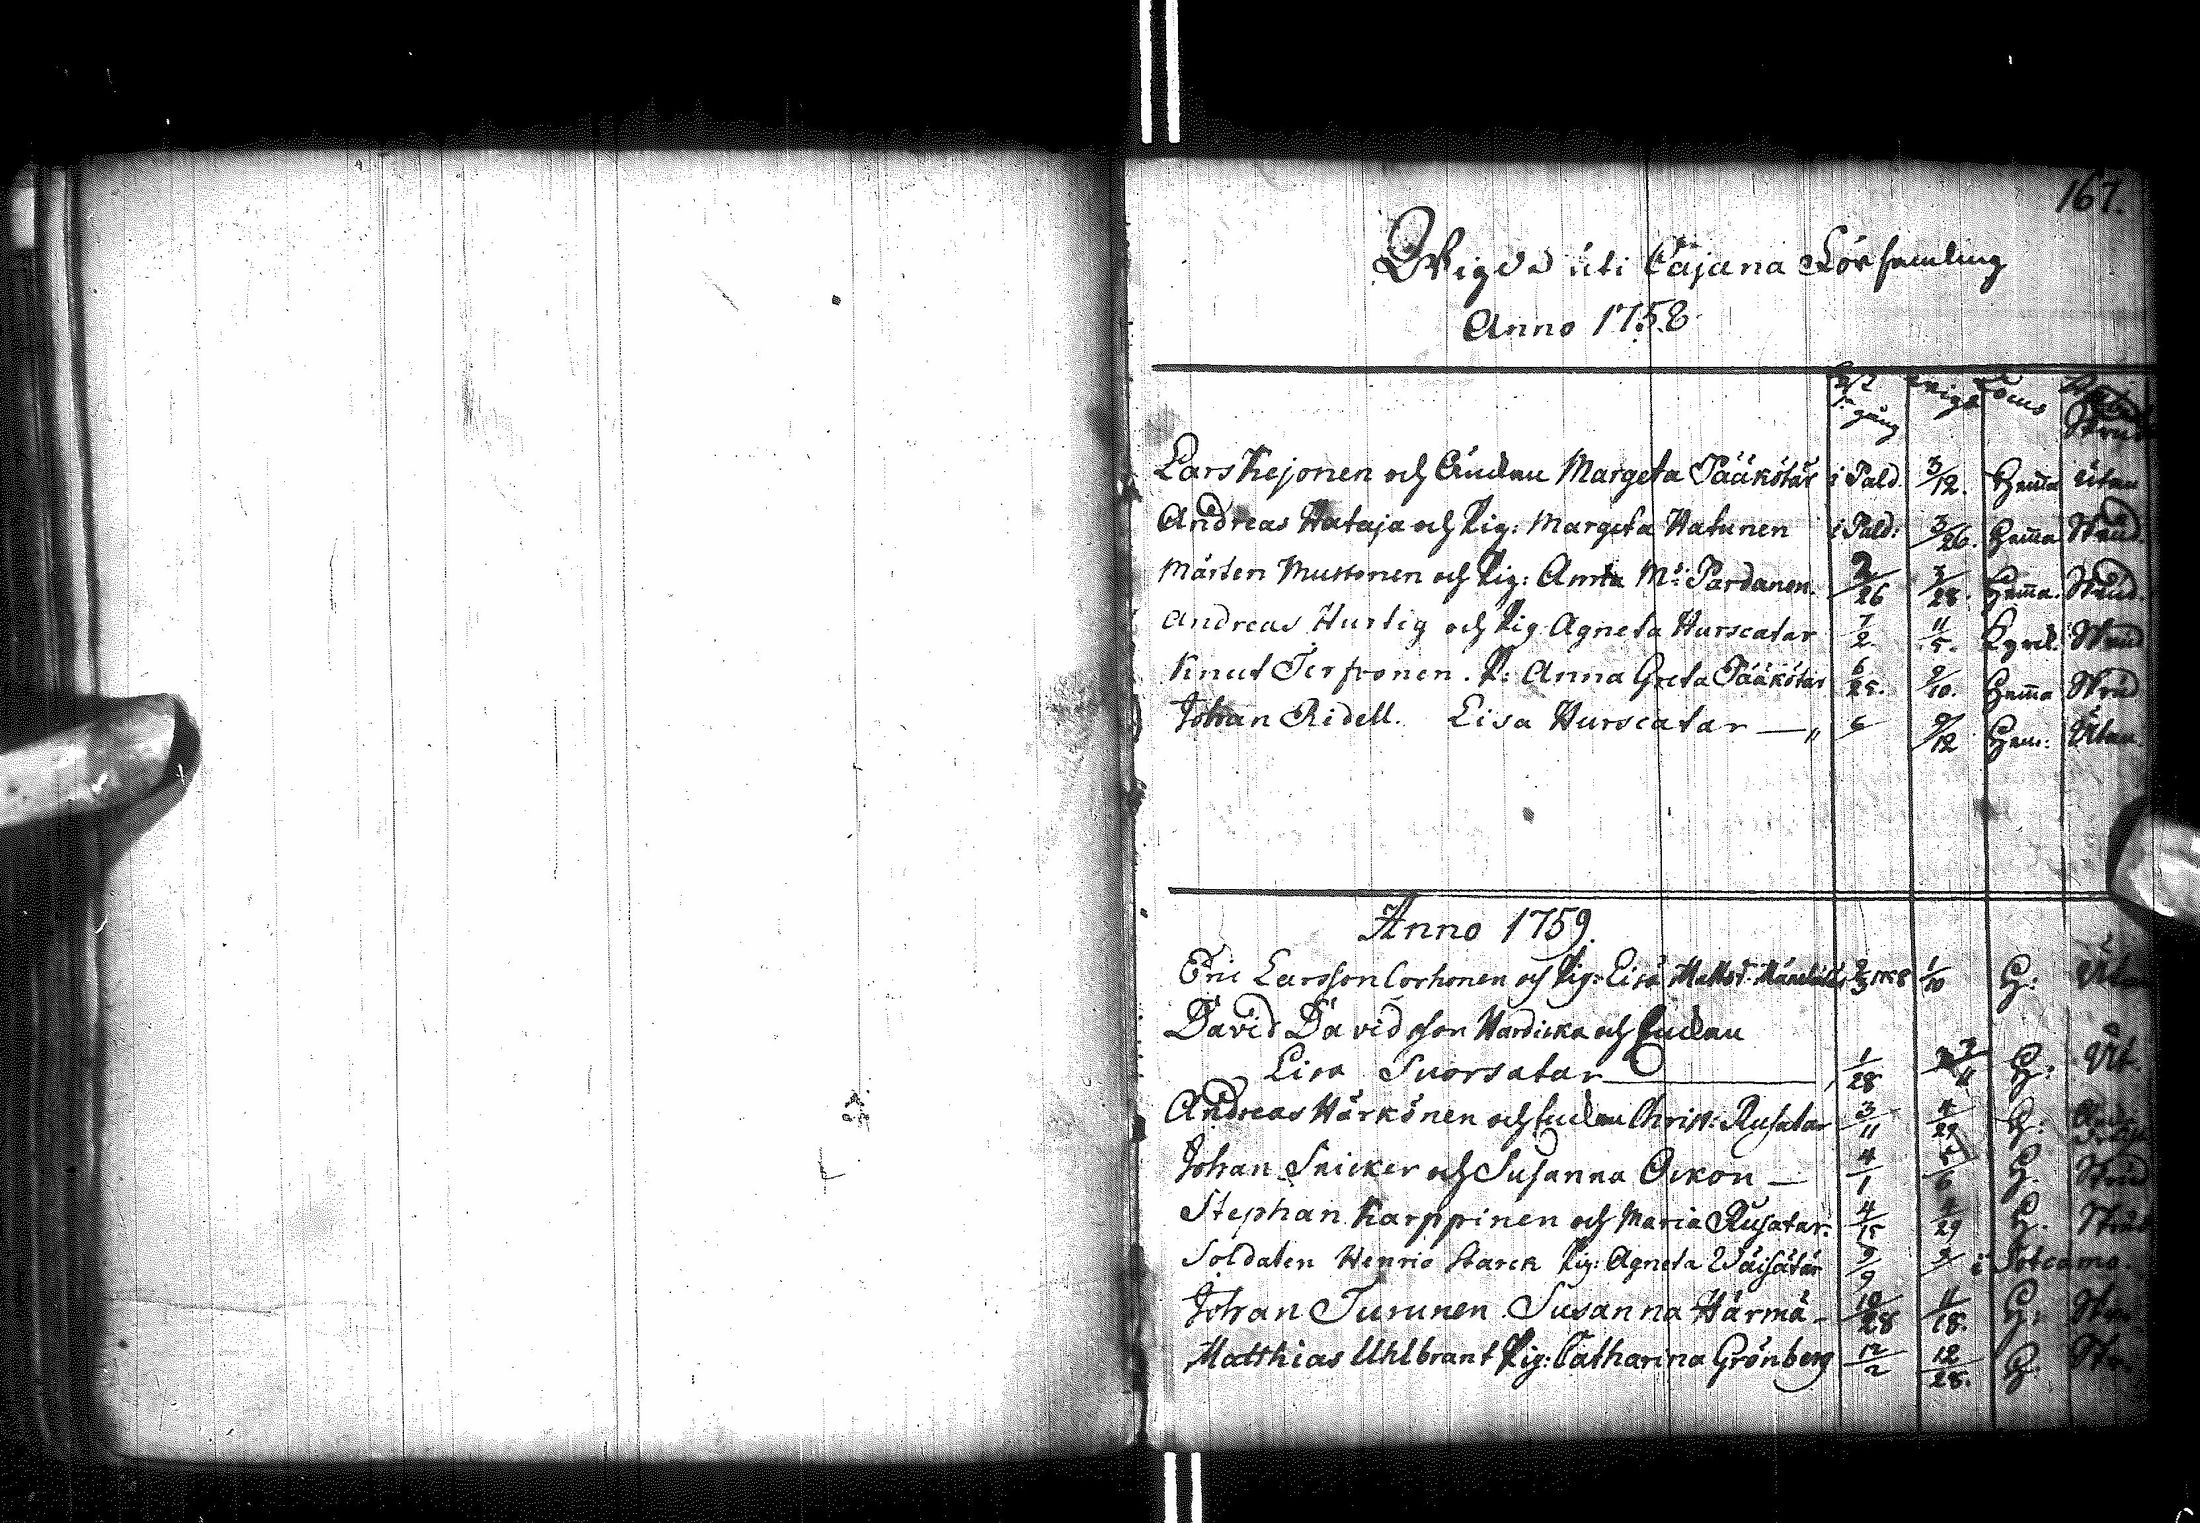 167.
Wigde uti Cajana Församling
Anno 1758
Lyst 1:a gång Wigde Locus
Lars Kejonen och Änckan Margeta Pääkötär i Pald. 3/12. Hemma Utan
Andreas Hataja och Pig: Margeta Hatunen i Pald: 3/26. Hemma Brud.
Mårten Mustonen och Pig: Anna M:s Pardanen. 2/26 3/28. Hemma. Brud.
Andreas Hurtig och Pig Agneta Hurscatar 7/2. 11/5. Kyrck. Brud
Knut Terfwonen. P: Anna Greta Pääkötär 6/25. 9/10. Hemma Brud
Johan Ridell. Lisa Hurscatar — „ 6/ 9/12 Hem: Utan.
Anno 1759.
Eric Larsson Corhonen och Pig: Lisa Matts d: 1758 1/10 H: Utan
David Davidsson Hardicka och Enckan
Lisa Suorsatar 1/28 H: Ut.
Andreas Härkönen och Enckan Christ: Rusatar 3/11 4/29 H:
Johan Snicker och Susanna Ockon — 4/1 H. Brud
Stephan Karppinen och Maria Rusatar. 4/15 29 H. Brud
Soldaten Henric Starck Pig: Agneta Wäisätär 9/9 9/ i Sotcamo.
Johan Turunen Susanna Härmä - 10/28 11/18. H:
Matthias Uhlbrant Pig: Catharina Grönberg 12/2 12/28. H.